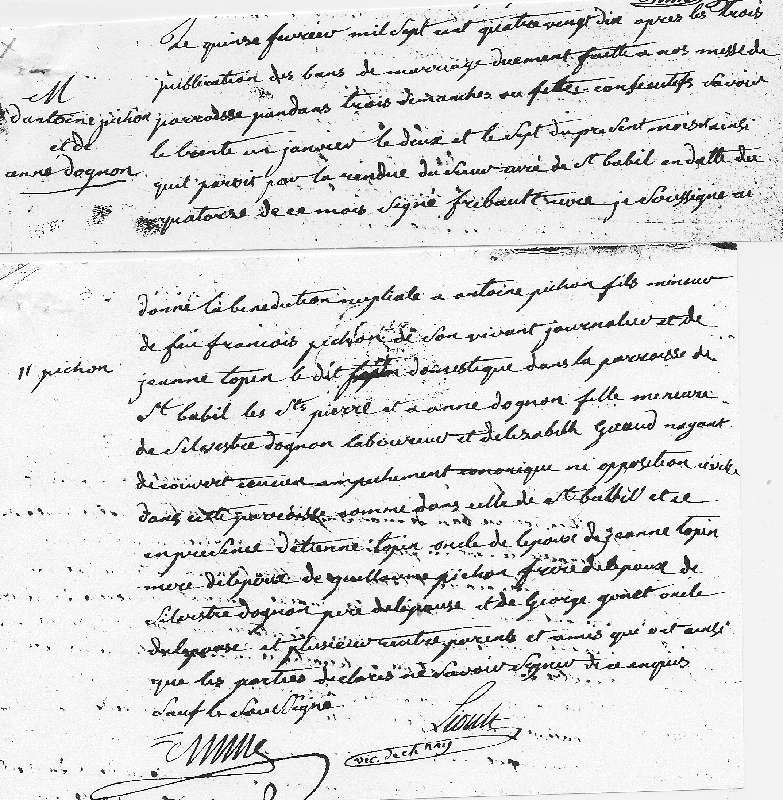 Le quinse fevrier mil sept cent quatre vingt dix apres les trois
publication des bans de marriage duement faitte a nos messe de
M
d'antoine pichon
et de
anne dognon
parroisse pandans trois dimanches ou fette consecutifs savoir
le trente un janvier le deux et le sept du present mois et ainsi
quil paroit par la rendue du sieur curé de St babil en datte du
quatorse de ce mois signé curé je soussigne ai
donné la benediction nuptiale a antoine pichon fils mineur
de feu francois pichon de son vivant journalier et de
11 pichon
jeanne topin le dit domestique dans la parroisse de
St babil les Sts pierre et a anne dognon fille mineure
de Silvestre dognon laboureur et delizabeth Giraud nayant
découvert aucun ampechement canonique ni opposition civile
dans cette parroisse comme dans celle de St babil et ce
en presence d'etienne topin oncle de lepoux de jeanne topin
mere de lepoux de guillaume pichon frere de lepoux de
Silvestre dognon pere de lepouse et de George oncle
de lepouse et plusieur autre parents et amis qui ont ainsi
que les parties declarés ne savoir signer de ce enquis
sauf le soussigné
vic. de